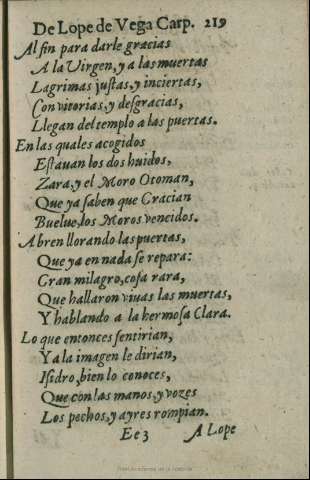 De Lope de Vega Carp. 219
Al fin para darle gracias
A la Virgen, y a las muertas
Lagrimas juſtas, y inciertas,
Con vitorias, y deſgracias,
Llegan del templo a las puertas.
En las quales acogidos
Eſtauan los dos huidos,
Zara, y el Moro Otoman,
Que ya ſaben que Gracian
Buelue, los Moros vencidos.
Abren llorando las puertas,
Que ya en nada ſe repara:
Gran milagro, coſa rara,
Que hallaron viuas las muertas,
Y hablando a la hermoſa Clara.
Lo que entonces ſentirian,
Y a la imagen le dirian,
Iſidro, bien lo conoces,
Que con las manos, y vozes
Los pechos, y ayres rompian.
Ee 3 A Lope